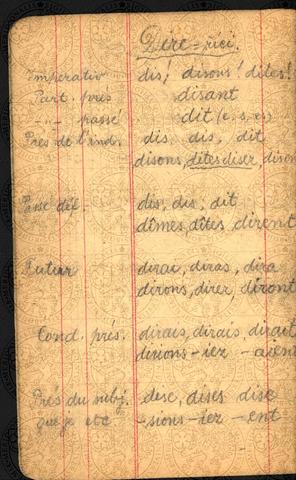 Dire - říci.
Imperativ dis! disons! dites!
Part. prés disant
-"- passé dit (e, s, es)
Prés de l'ind. dis, dis, dit
disons, dites diser, disent
Passé déf. dis, dis, dit
dîmes, dîtes, dirent
Futur dirai, diras, dira
dirons, direz, diront
Cond. prés. dirais, dirais, dirait
dirions -iez -aient
Prés du subj. dise, dises dise
que je etc -sions -iez -ent